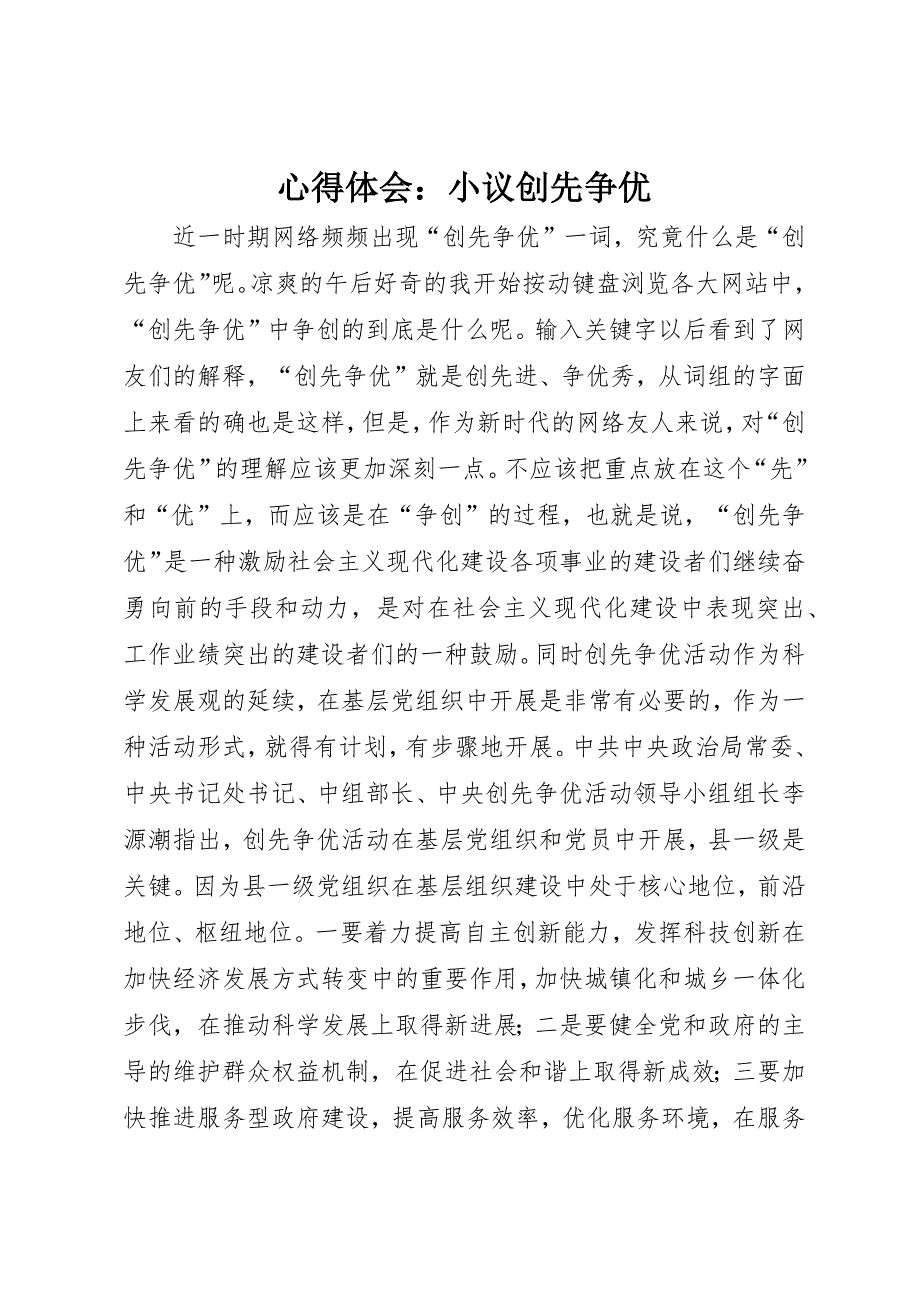 心得体会：小议创先争优
近一时期网络频频出现“创先争优”一词，究竟什么是“创
先争优”呢。凉爽的午后好奇的我开始按动键盘浏览各大网站中，
“创先争优”中争创的到底是什么呢。输入关键字以后看到了网
友们的解释，“创先争优”就是创先进、争优秀，从词组的字面
上来看的确也是这样，但是，作为新时代的网络友人来说，对“创
先争优”的理解应该更加深刻一点。不应该把重点放在这个“先”
和“优”上，而应该是在“争创”的过程，也就是说，“创先争
优”是一种激励社会主义现代化建设各项事业的建设者们继续奋
勇向前的手段和动力，是对在社会主义现代化建设中表现突出、
工作业绩突出的建设者们的一种鼓励。同时创先争优活动作为科
学发展观的延续，在基层党组织中开展是非常有必要的，作为一
种活动形式，就得有计划，有步骤地开展。中共中央政治局常委、
中央书记处书记、中组部长、中央创先争优活动领导小组组长李
源潮指出，创先争优活动在基层党组织和党员中开展，县一级是
关键。因为县一级党组织在基层组织建设中处于核心地位，前沿
地位、枢纽地位。一要着力提高自主创新能力，发挥科技创新在
加快经济发展方式转变中的重要作用，加快城镇化和城乡一体化
步伐，在推动科学发展上取得新进展；二是要健全党和政府的主
导的维护群众权益机制，在促进社会和谐上取得新成效；三要加
快推进服务型政府建设，提高服务效率，优化服务环境，在服务